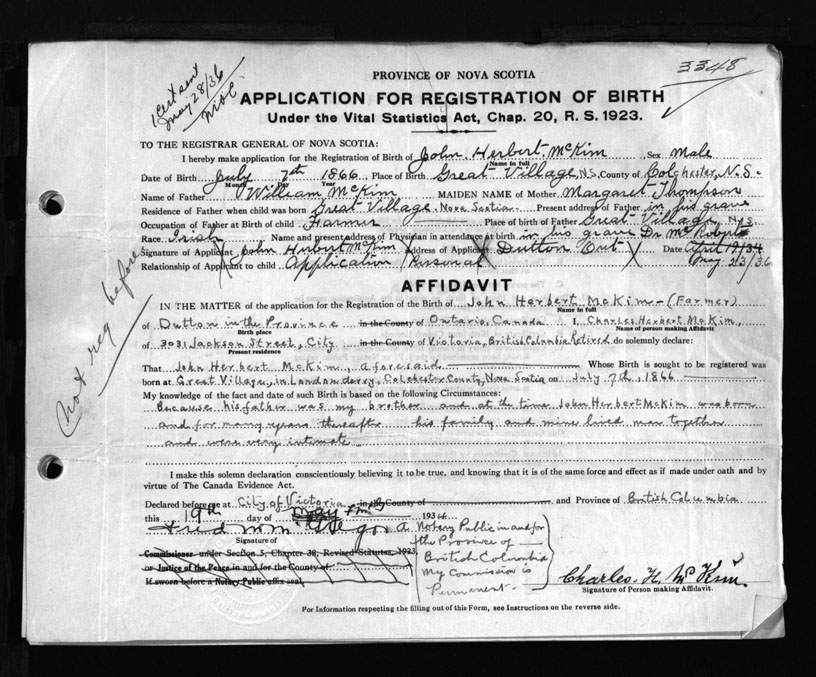 3348
1 Cert sent
May 28/36
PROVINCE OF NOVA SCOTIA
APPLICATION FOR REGISTRATION OF BIRTH
Under the Vital Statistics Act, Chap. 20, R. S. 1923.
TO THE REGISTRAR GENERAL OF NOVA SCOTIA:
I hereby make application for the Registration of Birth of John Herbert McKim Sex Male
Name in full
Date of Birth July 7th 1866 Place of Birth Great Village, N.S. County of Colchester, N.S.
Month Day Year
Name of Father William McKim MAIDEN NAME of Mother Margaret Thompson
Residence of Father when child was born Great Village Nova Scotia Present address of Father in his grave
Occupation of Father at Birth of Child Farmer Place of birth of Father Great Village N.S.
Race Irish Name and present address of Physician in attendance at birth in his grave Dr
Signature of Applicant John Herbert McKim Address of Applicant Dutton Ont Date April 19/34
May 23/36
Relationship of Applicant to child Application Personal
not reg before
AFFIDAVIT
IN THE MATTER of the application for the Registration of the Birth of John Herbert McKim (Farmer)
Name in full
of Dutton in the Province in the County of Ontario, Canada I, Charles Herbert McKim,
Birth place Name of person making Affidavit
of 3031 Jackson Street, City in the County of Victoria, British Columbia Retired do solemnly declare:
Present residence
That John Herbert McKim, aforesaid Whose Birth is sought to be registered was
born at Great Village, in Londonderry, Colchester County, Nova Scotia on July 7th, 1866
My knowledge of the fact and date of such Birth is based on the following Circumstances:
Because his father was my brother and at the time John Herbert McKim was born
and for many years thereafter his family and mine lived near together
and were very intimate
I make this solemn declaration conscientiously believing it to be true, and knowing that it is of the same force and effect as if made under oath and by
virtue of The Canada Evidence Act.
Declared before me at City of Victoria in the County of and Province of British Columbia
this 19th day of May 1936
Fred Wm
Signature of
A Notary Public in and for
the Province of
British Columbia
My Commission is
Permanent.
Commissioner under Section 5, Chapter 38, Revised Statutes, 1923,
or Justice of the Peace in and for the County of
If sworn before a Notary Public affix seal
Charles. H. McKim.
Signature of Person making Affidavit.
For Information respecting the filling out of this Form, see Instructions on the reverse side.